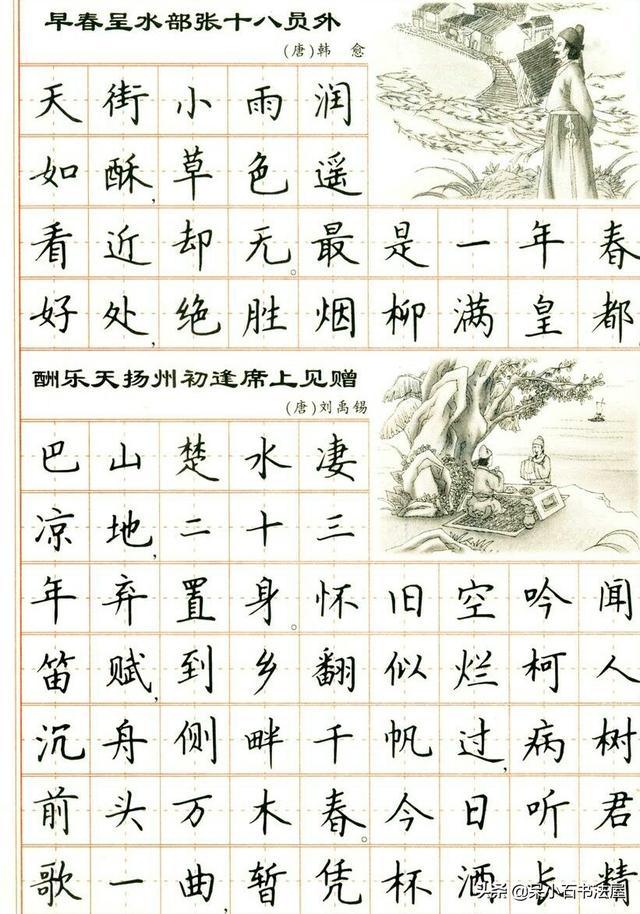 早春呈水部张十八员外
(唐)韩 愈
天街小雨润
如酥,草色遥
看近却无。最是一年春
好处,绝胜烟柳满皇都
酬乐天扬州初逢席上见赠
(唐)刘禹锡
巴山楚水凄
凉地,二十三
年弃置身。怀旧空吟闻
笛赋,到乡翻似烂柯人
沉舟侧畔千帆过,病树
前头万木春。今日听君
歌一曲,暂凭杯酒长精
头条@呆小石书法屋